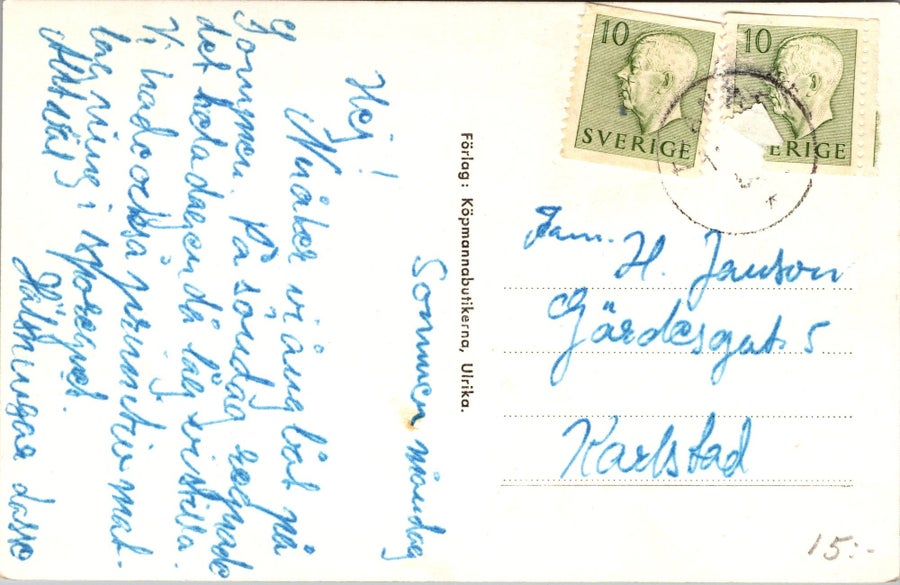 Sommen måndag
Hej!
Nu åker vi ångbåt på
Sommen. På söndag regnade
det hela dagen då låg vi stilla.
Vi hade också primitiv mat-
lagning i spöregnet.
Allt väl
Hälsningar Lasse
Förlag: Köpmannabutikerna, Ulrika.
10
SVERIGE
10
ERIGE
Fam.
H. Janson
Gärdesgat. 5
Karlstad
15:-